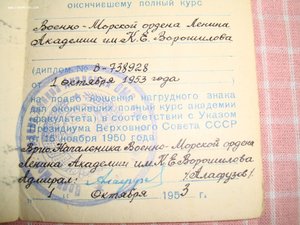 окончившему полный курс
Военно-Морской ордена Ленина
Академии им. К. Е. Ворошилова
(диплом № В-738928
от 1 октября 1953 года
на право ношения нагрудного знака
для окончивших полный курс академии
(факультета) в соответствии с Указом
Президиума Верховного Совета СССР
15 ноября 1950 года.
Врио Начальника Военно-Морской ордена
Ленина Академии им. К. Е. Ворошилова
Адмирал: /Алафузов/
1 Октября 1953